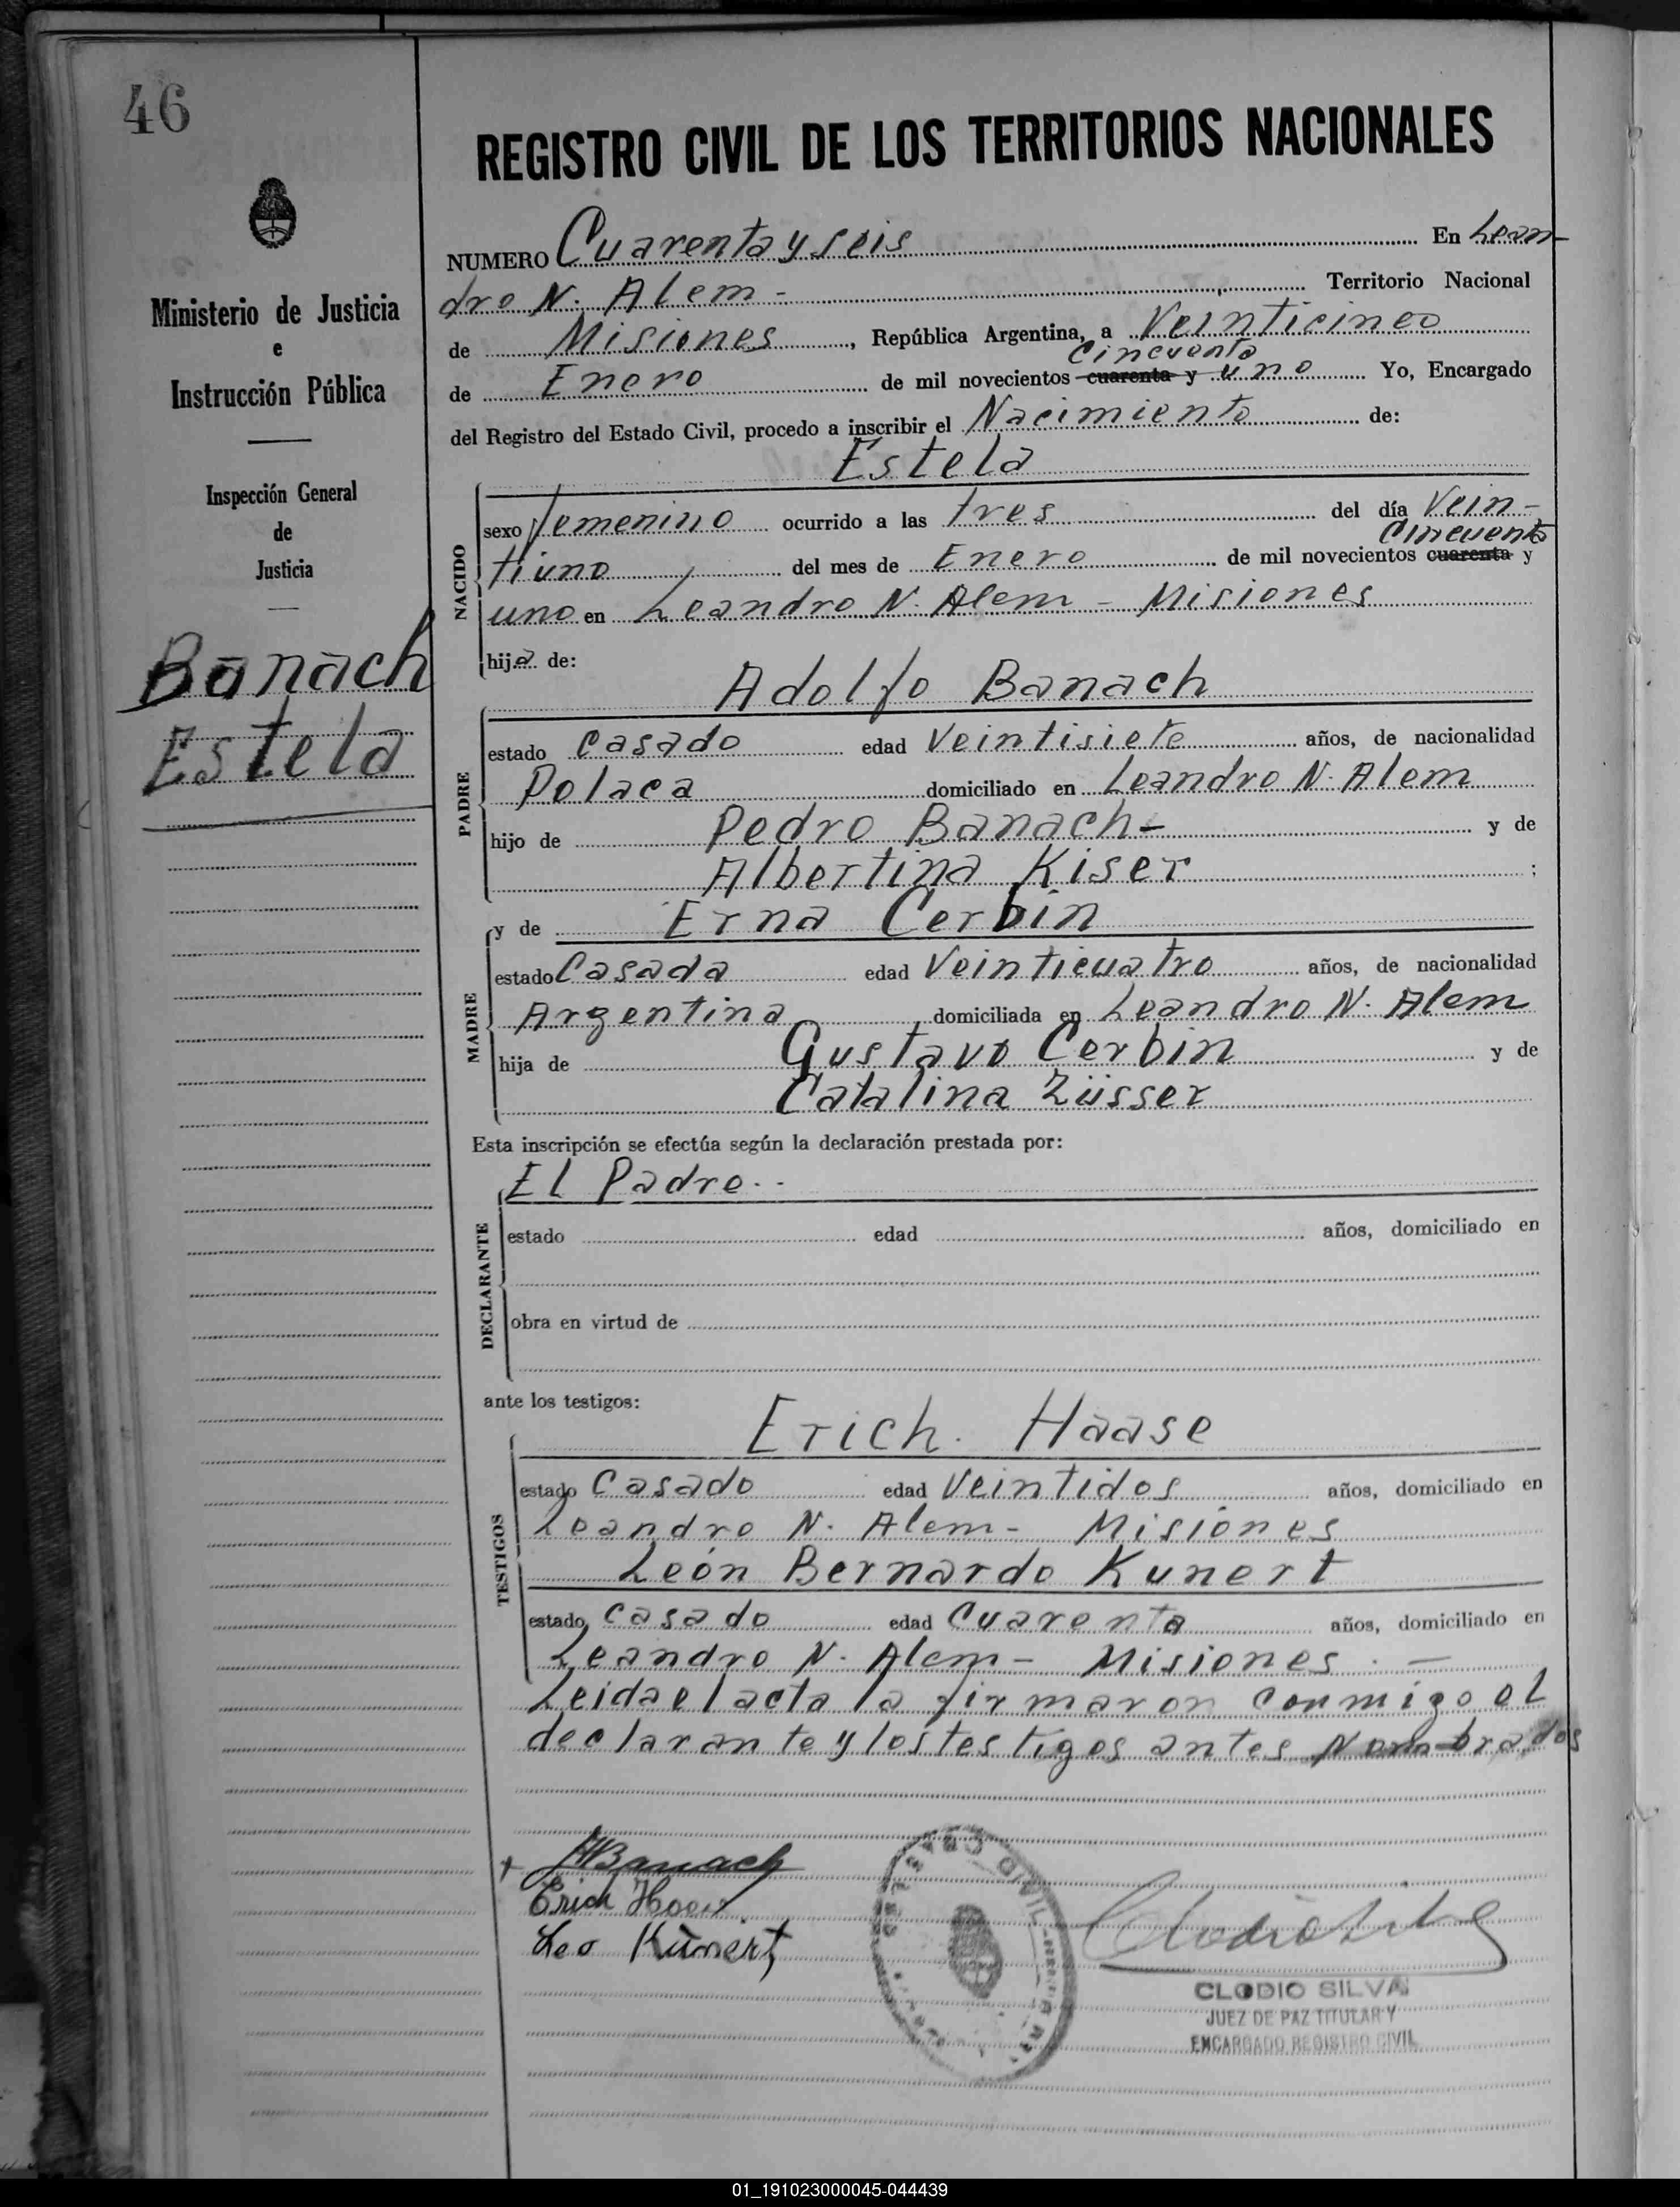 46
Ministerio de Justicia
e
Instrucción Pública
Inspección General
de
Justicia
Banach
Estela
REGISTRO CIVIL DE LOS TERRITORIOS NACIONALES
NUMERO Cuarenta y seis En Lean-
dro N. Alem - Territorio Nacional
de Misiones, República Argentina, a Veinticinco
cincuenta
de Enero de mil novecientos cuarenta y uno Yo, Encargado
del Registro del Estado Civil, procedo a inscribir el Nacimiento de:
Estela
NACIDO
sexo femenino ocurrido a las tres del día Vein-
cincuenta
tiuno del mes de Enero de mil novecientos cuarenta y
uno en Leandro N. Alem - Misiones
hija de:
Adolfo Banach
PADRE
estado casado edad Veintisiete años, de nacionalidad
Polaca domiciliado en Leandro N. Alem
hijo de Pedro Banach - y de
Albertina Kiser ;
y de Erna Cerbin
MADRE
estado Casada edad Veinticuatro años, de nacionalidad
Argentina domiciliada en Leandro N. Alem
hija de Gustavo Cerbin y de
Catalina Züsser
Esta inscripción se efectúa según la declaración prestada por:
El Padre. -
DECLARANTE
estado edad años, domiciliado en
obra en virtud de
ante los testigos:
Erich. Haase
TESTIGOS
estado Casado edad Veintidos años, domiciliado en
Leandro N. Alem - Misiones
León Bernardo Kunert
estado casado edad Cuarenta años, domiciliado en
Leandro N. Alem - Misiones. -
Leida el acta la firmaron conmigo el
declarante y los testigos antes Nombrados
Banach
Erich
Leo Kunert
CLODIO SILVA
JUEZ DE PAZ TITULAR Y
ENCARGADO REGISTRO CIVIL
01_191023000045-044439